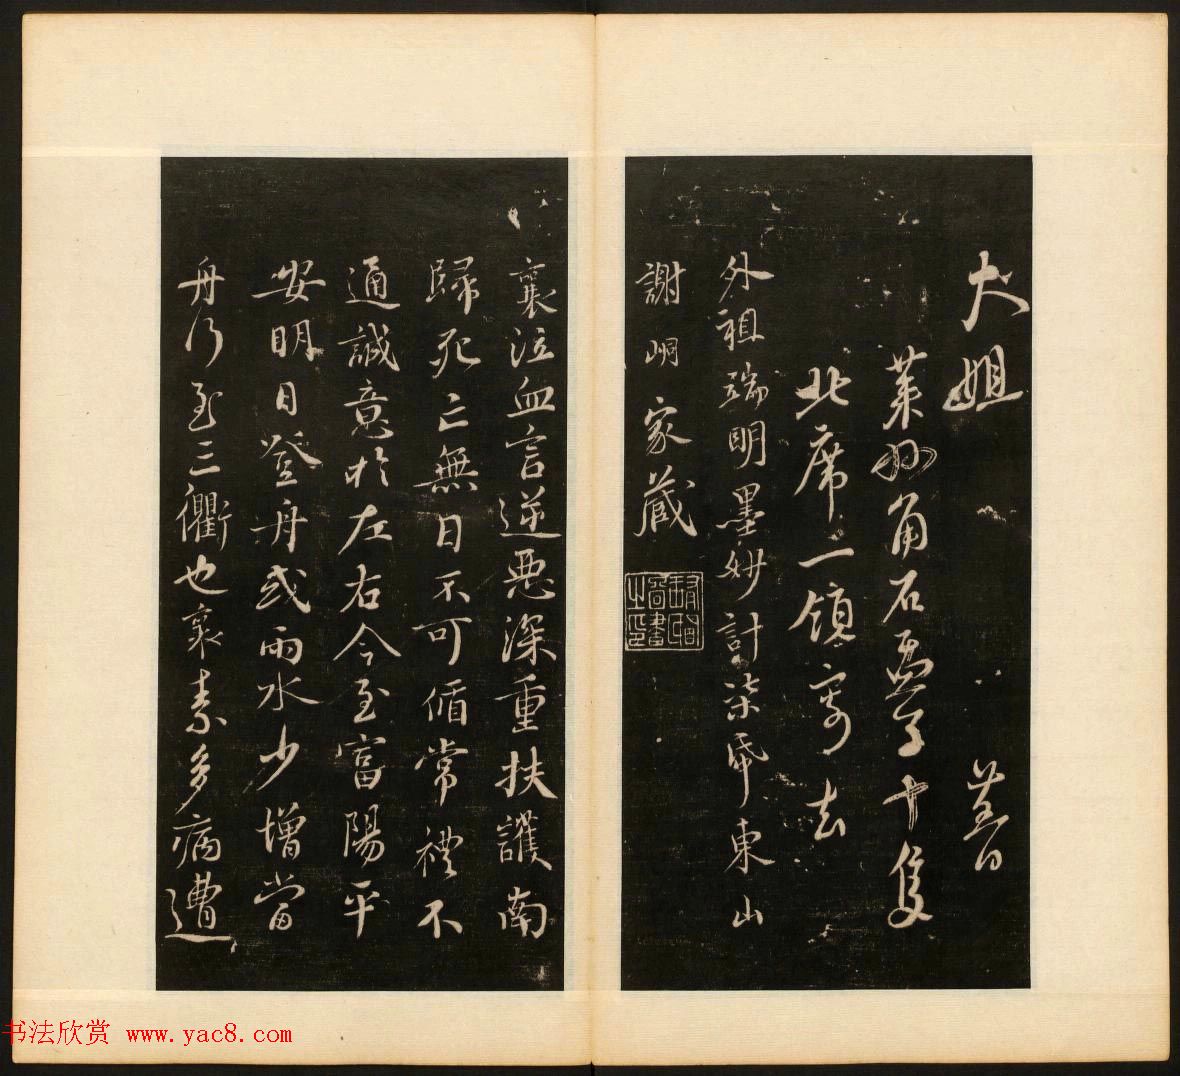 大姐
萊州角石 子十隻
北席一領寄去
外祖端明墨妙計柒帋東山
謝峒家藏
襄泣血言逆惡深重扶護南
歸死亡無日不可循常禮不
通誠意於左右今至富陽平
安明日登舟或雨水少增當
舟行至三衢也襄素多病遭
书法欣赏 www.yac8.com